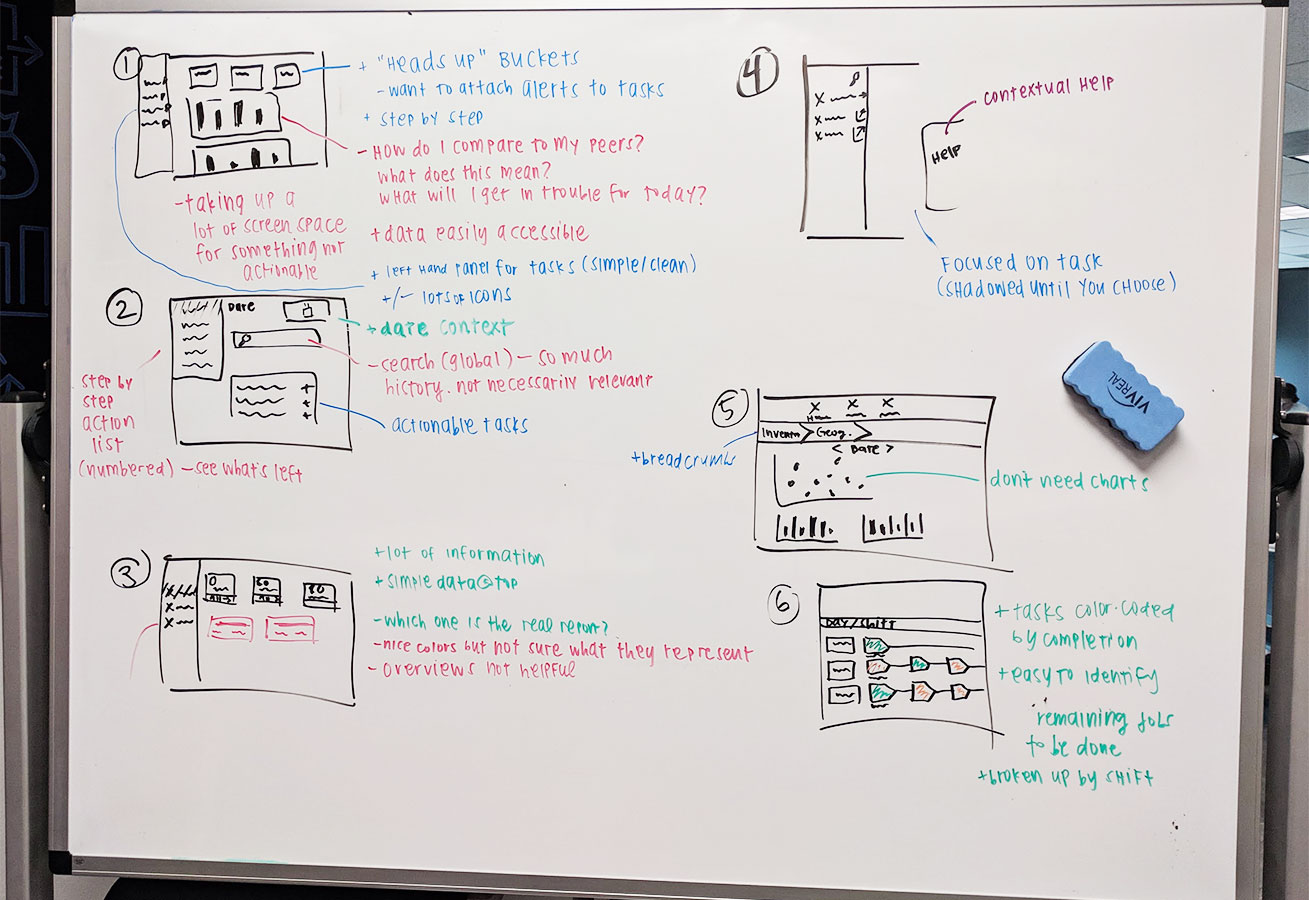 1
+ "Heads up" Buckets
- want to attach alerts to tasks
+ step by step
- How do I compare to my peers?
what does this mean?
what will I get in trouble for today?
- taking up a
lot of screen space
for something not
actionable
+ data easily accessible
+ left hand panel for tasks (simple/clean)
+/- lots of icons
2
Date
+ date context
- search (global) - so much
history. not necessarily relevant
actionable tasks
step by
step
action
list
(numbered) - see what's left
3
0
50
80
+ lot of information
+ simple data @ top
- which one is the real report?
- nice colors but not sure what they represent
- overviews not helpful
4
contextual help
Help
Focused on task
(shadowed until you choose)
VIVREAL
5
Inventn
Geog.
< Date >
+breadcrumbs
don't need charts
6
Day/shift
+ tasks color-coded
by completion
+ easy to identify
remaining jobs
to be done
+ broken up by shift